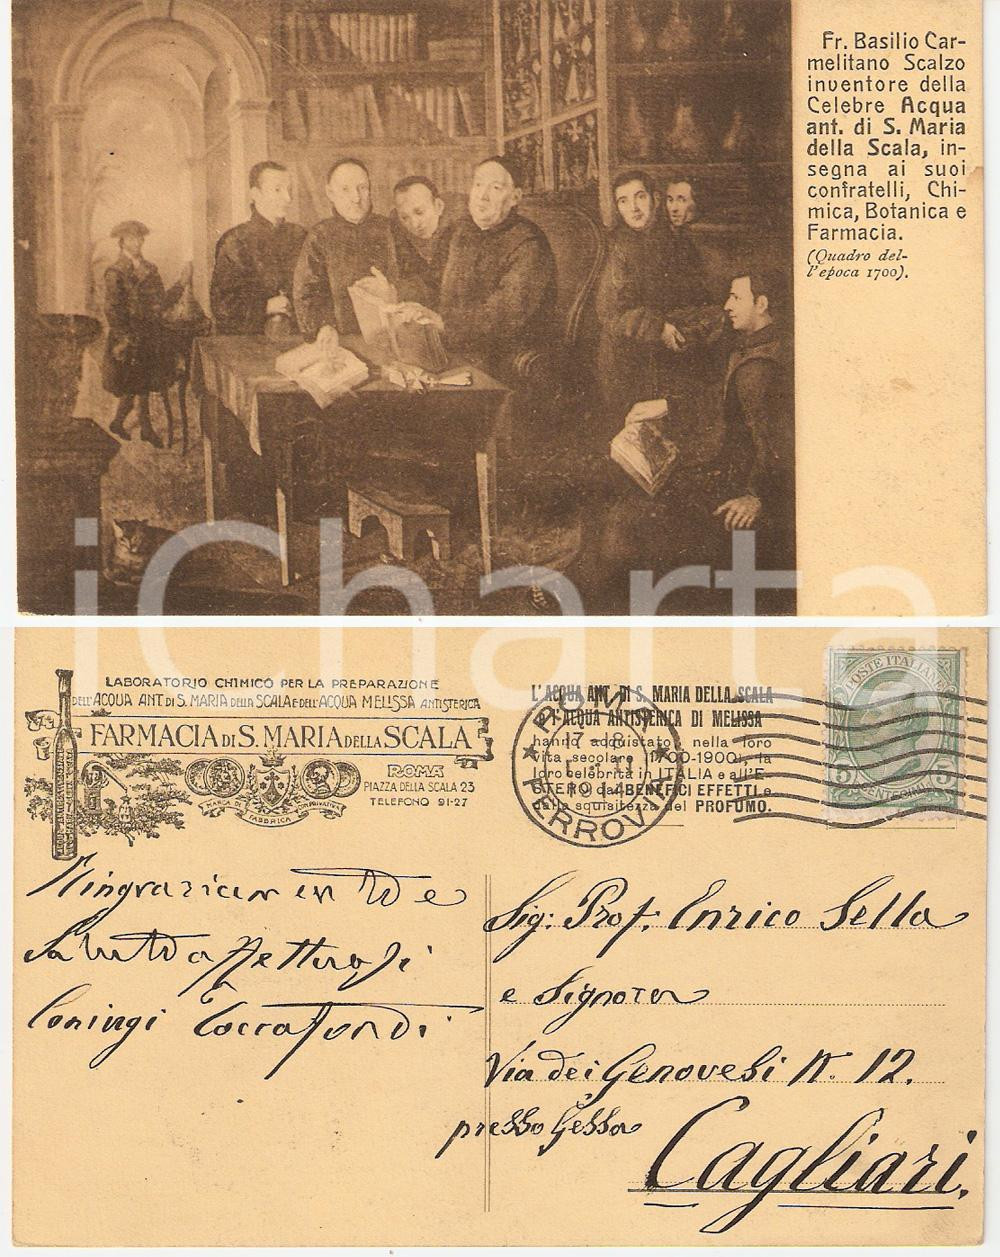 Fr. Basilio Car-
melitano Scalzo
inventore della
Celebre Acqua
ant. di S. Maria
della Scala, in-
segna ai suoi
confratelli, Chi-
mica, Botanica e
Farmacia.
(Quadro del-
l'epoca 1700).
iCharta
LABORATORIO CHIMICO PER LA PREPARAZIONE
DELL'ACQUA ANT. DI S. MARIA DELLA SCALA E DELL'ACQUA MELISSA ANTISTERICA
FARMACIA DI S. MARIA DELLA SCALA
ROMA
PIAZZA DELLA SCALA 23
TELEFONO 91-27
MARCA DI FABBRICA
L'ACQUA ANT. DI S. MARIA DELLA SCALA
E l'ACQUA ANTISTERICA DI MELISSA
hanno acquistato, nella loro
vita secolare (1700-1900), la
loro celebrità in ITALIA e all'E-
STERO dai BENEFICI EFFETTI e
dalla squisitezza del PROFUMO.
ROMA
17 - 8
1914
FERROVIA
POSTE ITALIANE
5 CENTESIMI 5
Ringraziamenti e
Saluti Affettuosi
Coniugi Toccafondi
Sig: Prof. Enrico Sella
e Signora
Via dei Genovesi N. 12.
presso Gessa
Cagliari.